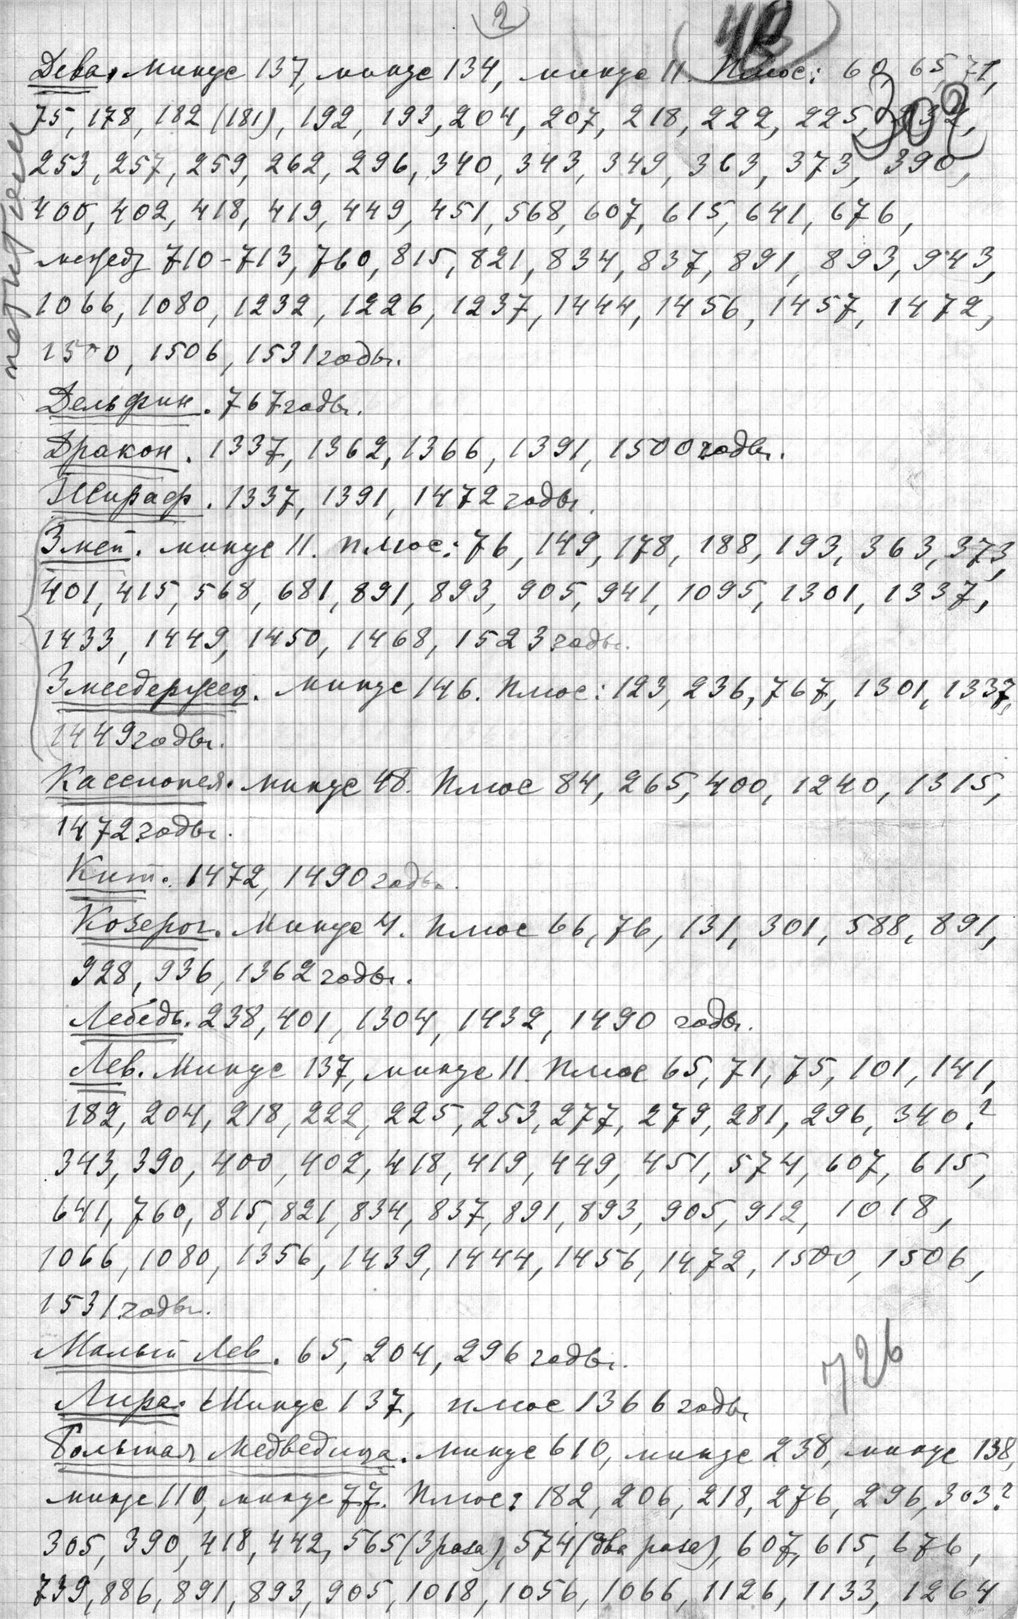 2
302
Дева. минус 137, минус 134, минус 11. Плюс: 60, 65, 71,
75, 178, 182 (181), 192, 193, 204, 207, 218, 222, 225,
253, 257, 259, 262, 296, 340, 343, 349, 363, 373, 390,
400, 402, 418, 419, 449, 451, 568, 607, 615, 641, 676,
между 710-713, 760, 815, 821, 834, 837, 891, 893, 943,
1066, 1080, 1232, 1226, 1237, 1444, 1456, 1457, 1472,
1500, 1506, 1531 годы.
Дельфин. 767 годы.
Дракон. 1337, 1362, 1366, 1391, 1500 годы.
Жираф. 1337, 1391, 1472 годы.
Змея. минус 11. плюс: 76, 149, 178, 188, 193, 363, 373,
401, 415, 568, 681, 891, 893, 905, 941, 1095, 1301, 1337,
1433, 1449, 1450, 1468, 1523 годы.
Змеедержец. минус 146. Плюс: 123, 236, 767, 1301, 1337,
1449 годы.
Кассиопея. минус 48. Плюс 84, 265, 400, 1240, 1315,
1472 годы.
Кит. 1472, 1490 годы.
Козерог. Минус 4. Плюс 66, 76, 131, 301, 588, 891,
928, 936, 1362 годы.
Лебедь. 238, 401, 1304, 1432, 1490 годы.
Лев. Минус 137, минус 11. Плюс 65, 71, 75, 101, 141,
182, 204, 218, 222, 225, 253, 277, 279, 281, 296, 340?
343, 390, 400, 402, 418, 419, 449, 451, 574, 607, 615,
641, 760, 815, 821, 834, 837, 891, 893, 905, 912, 1018,
1066, 1080, 1356, 1439, 1444, 1456, 1472, 1500, 1506,
1531 годы.
Малый Лев. 65, 204, 296 годы.
726
Лира. Минус 137, плюс 1366 годы
Большая Медведица. минус 610, минус 238, минус 138,
минус 110, минус 77. Плюс: 182, 206, 218, 276, 296, 303?
305, 390, 418, 442, 565 (3 раза), 574 (два раза), 607, 615, 676,
739, 886, 891, 893, 905, 1018, 1056, 1066, 1126, 1133, 1264